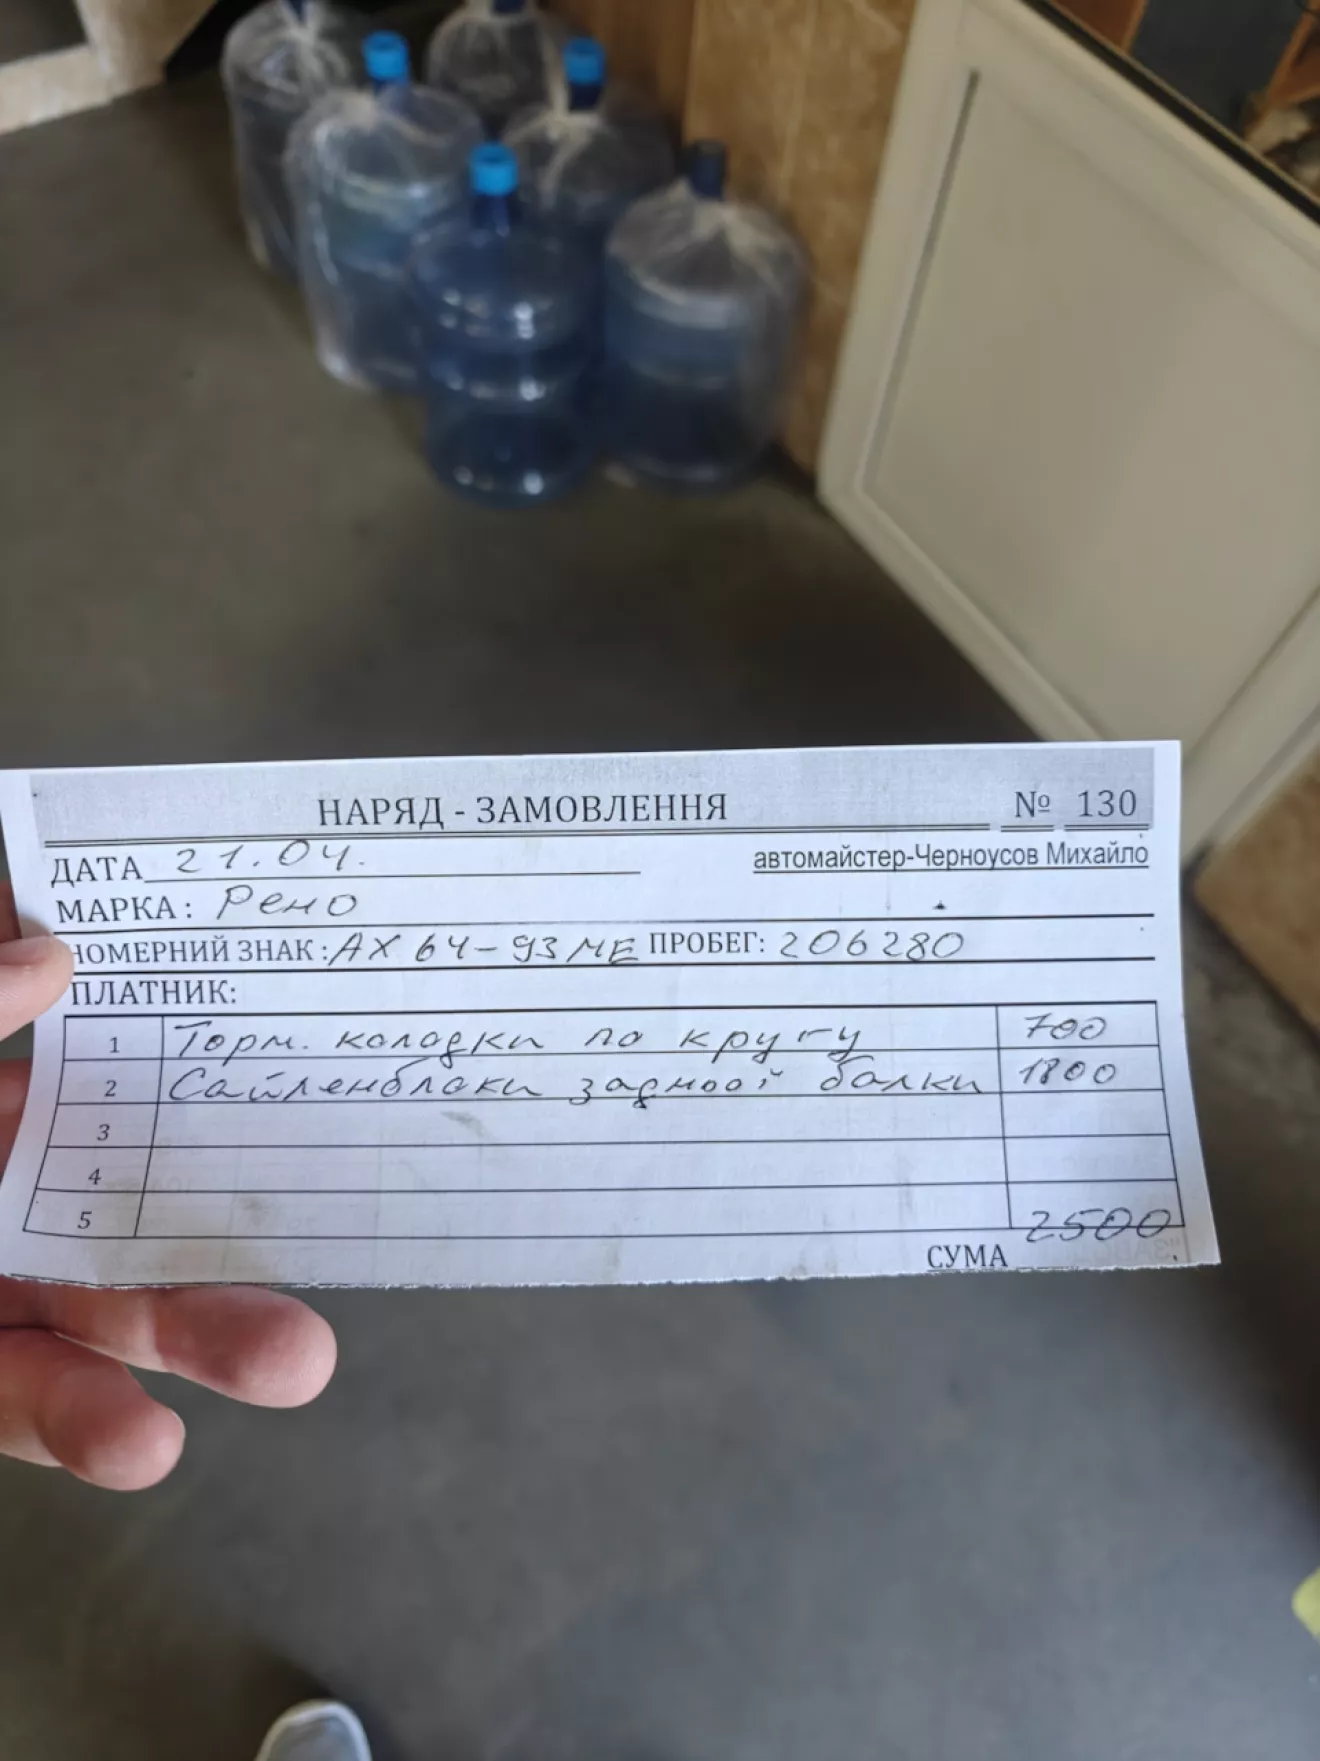 НАРЯД - ЗАМОВЛЕННЯ № 130
ДАТА 21.04.
автомайстер-Черноусов Михайло
МАРКА: Рено
НОМЕРНИЙ ЗНАК: АХ 64-93 МЕ ПРОБЕГ: 206280
ПЛАТНИК:
1 Торм. колодки по кругу 700
2 Сайленблоки задньої балки 1800
3
4
5
СУМА 2500